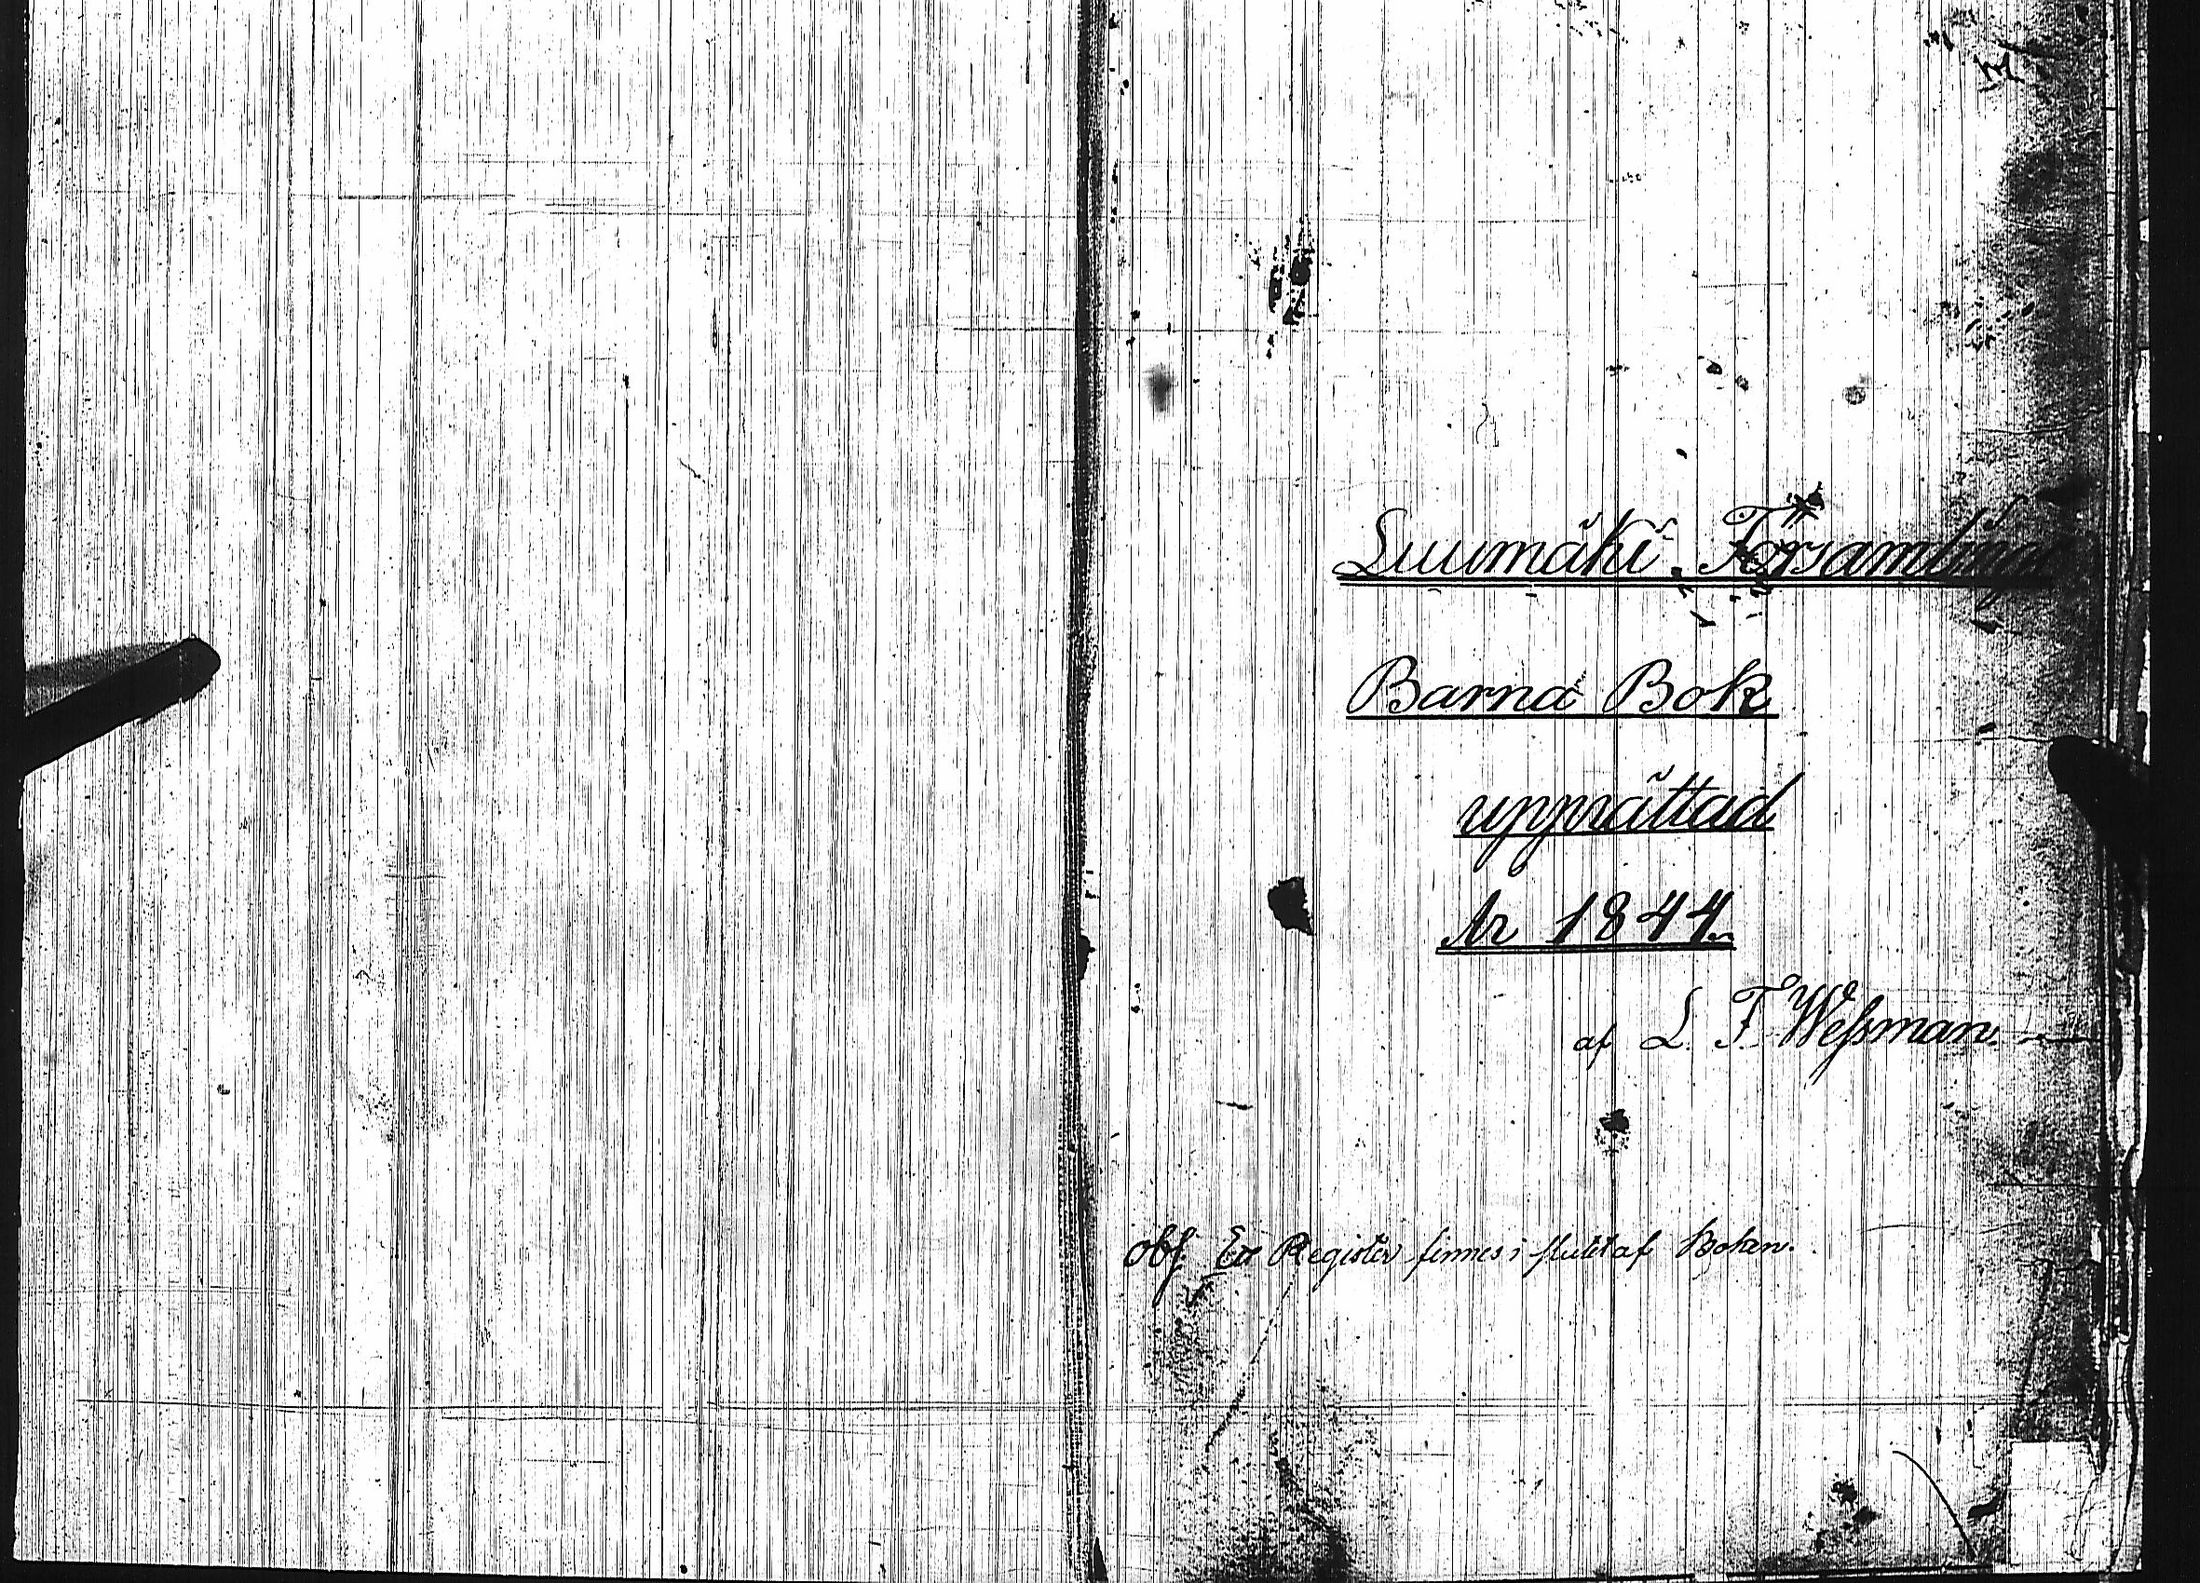 Luumäki Församlings
Barna Bok
upprättad
År 1844.
af L. F. Weſsman.
obſ. Et Register finnes i slutet af Boken.